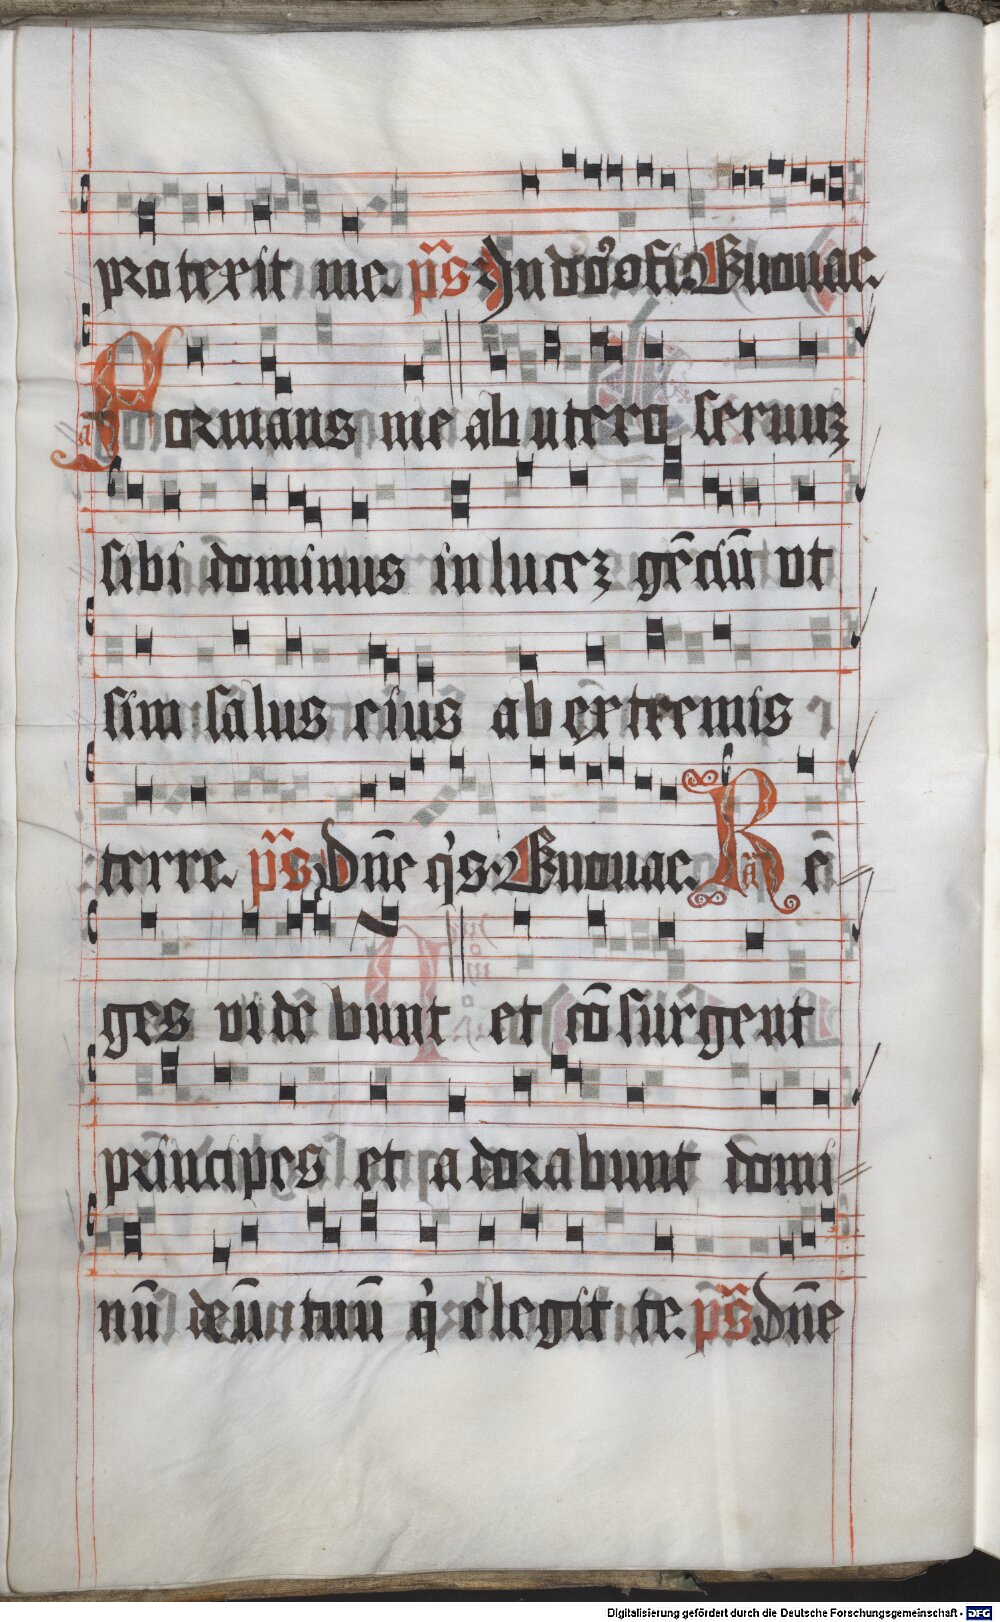 protexit me. p̄s In dn̄o ꝯfi. Euouae.
a Formans me ab utero seruuꝫ
sibi dominus in luceꝫ gēciū ut
sim salus eius ab extremis
terre. p̄s Dn̄e qͥs. Euouae. a Rē
ges videbunt et ꝯ̄surgent
principes et adorabunt domi
nū deū tuū qͥ elegit te. p̄s Dn̄e
Digitalisierung gefördert durch die Deutsche Forschungsgemeinschaft - DFG